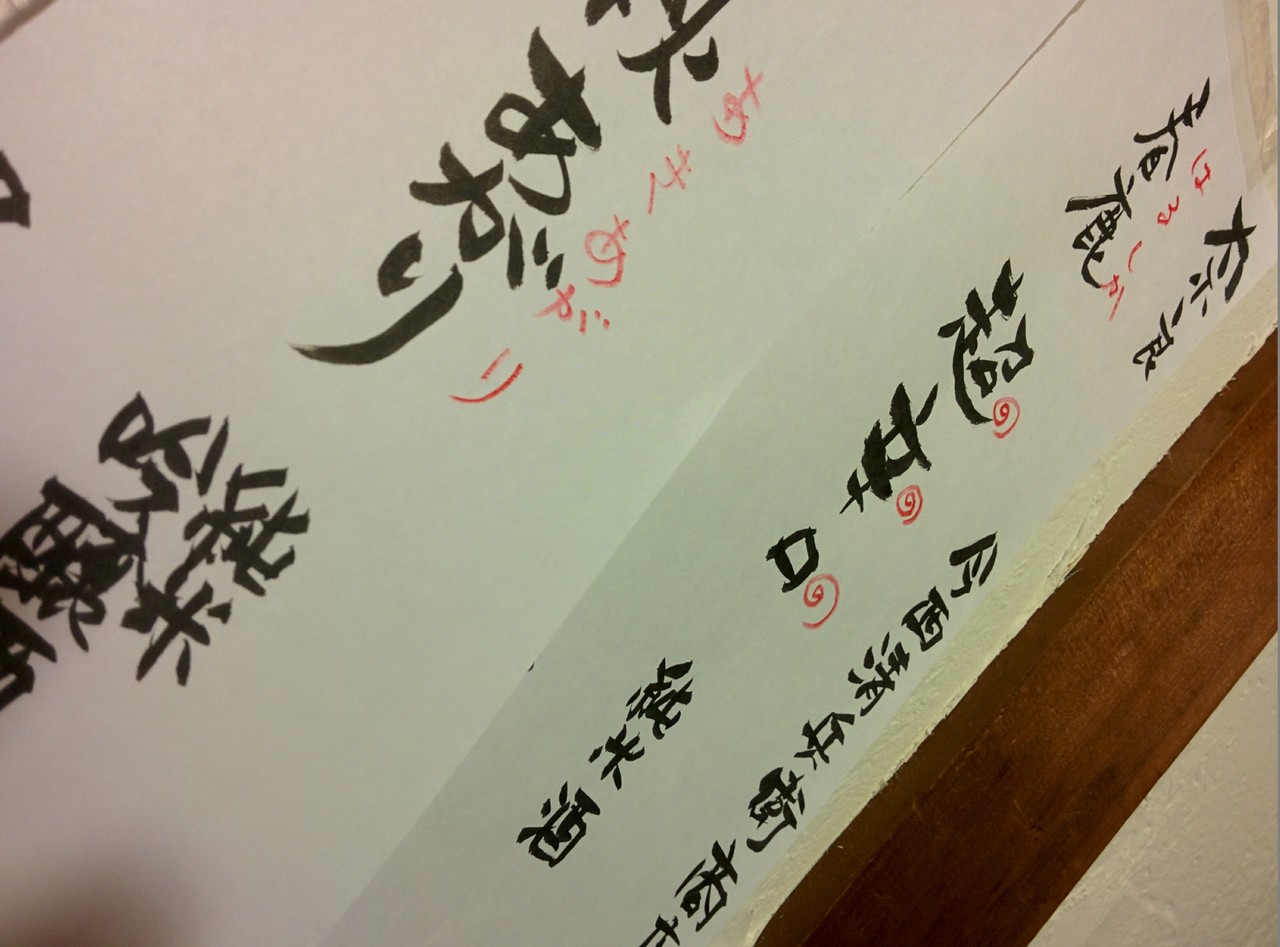 奈良
今西清兵衛商店
はるしか
春鹿
超辛口
純米酒
あきあがり
秋あがり
純米
吟醸